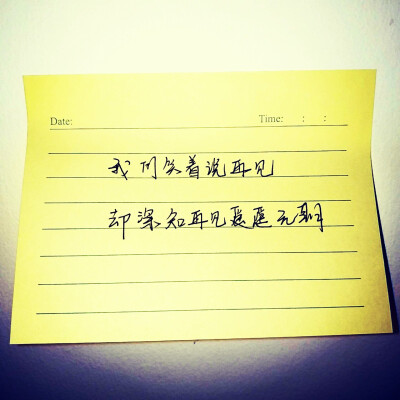 Date: Time: : :
我们笑着说再见
却深知再见遥遥无期